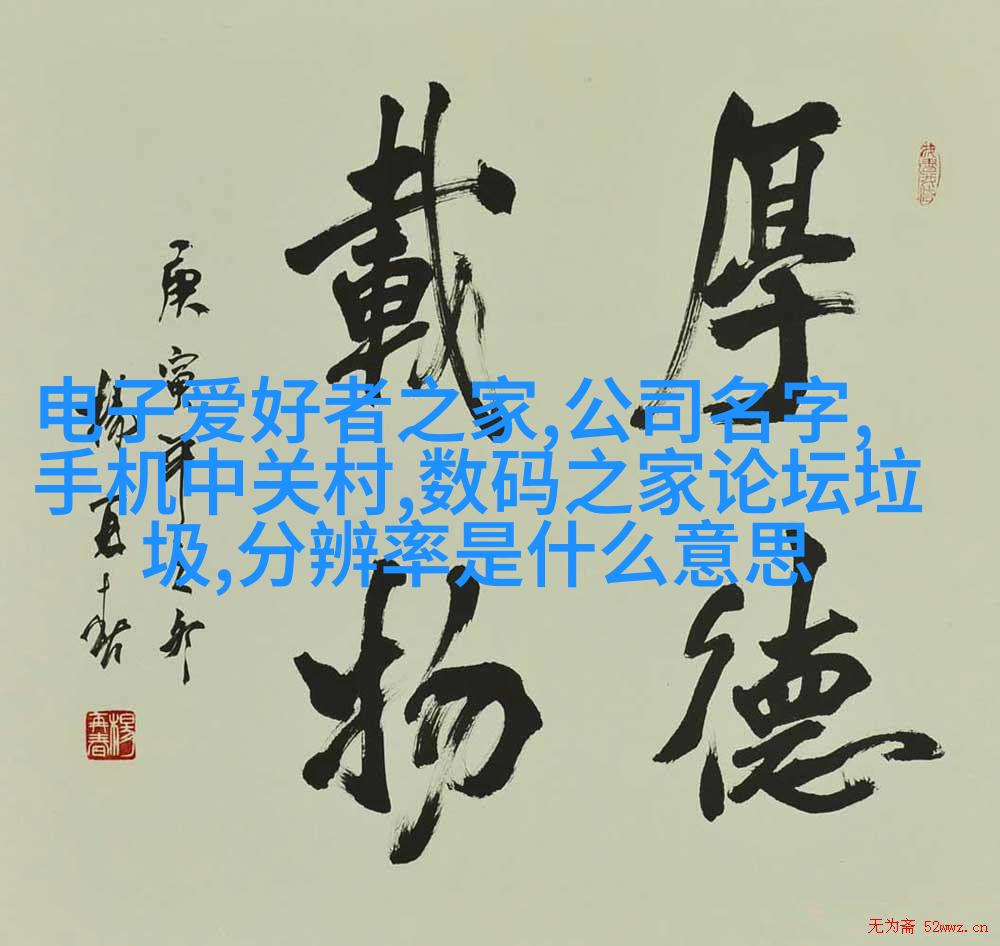 厚德
載物
庚寅年之卯
楊再春
楊再春
电子爱好者之家,公司名字,
手机中关村,数码之家论坛垃
圾,分辨率是什么意思
无为斋 52wwz.cn